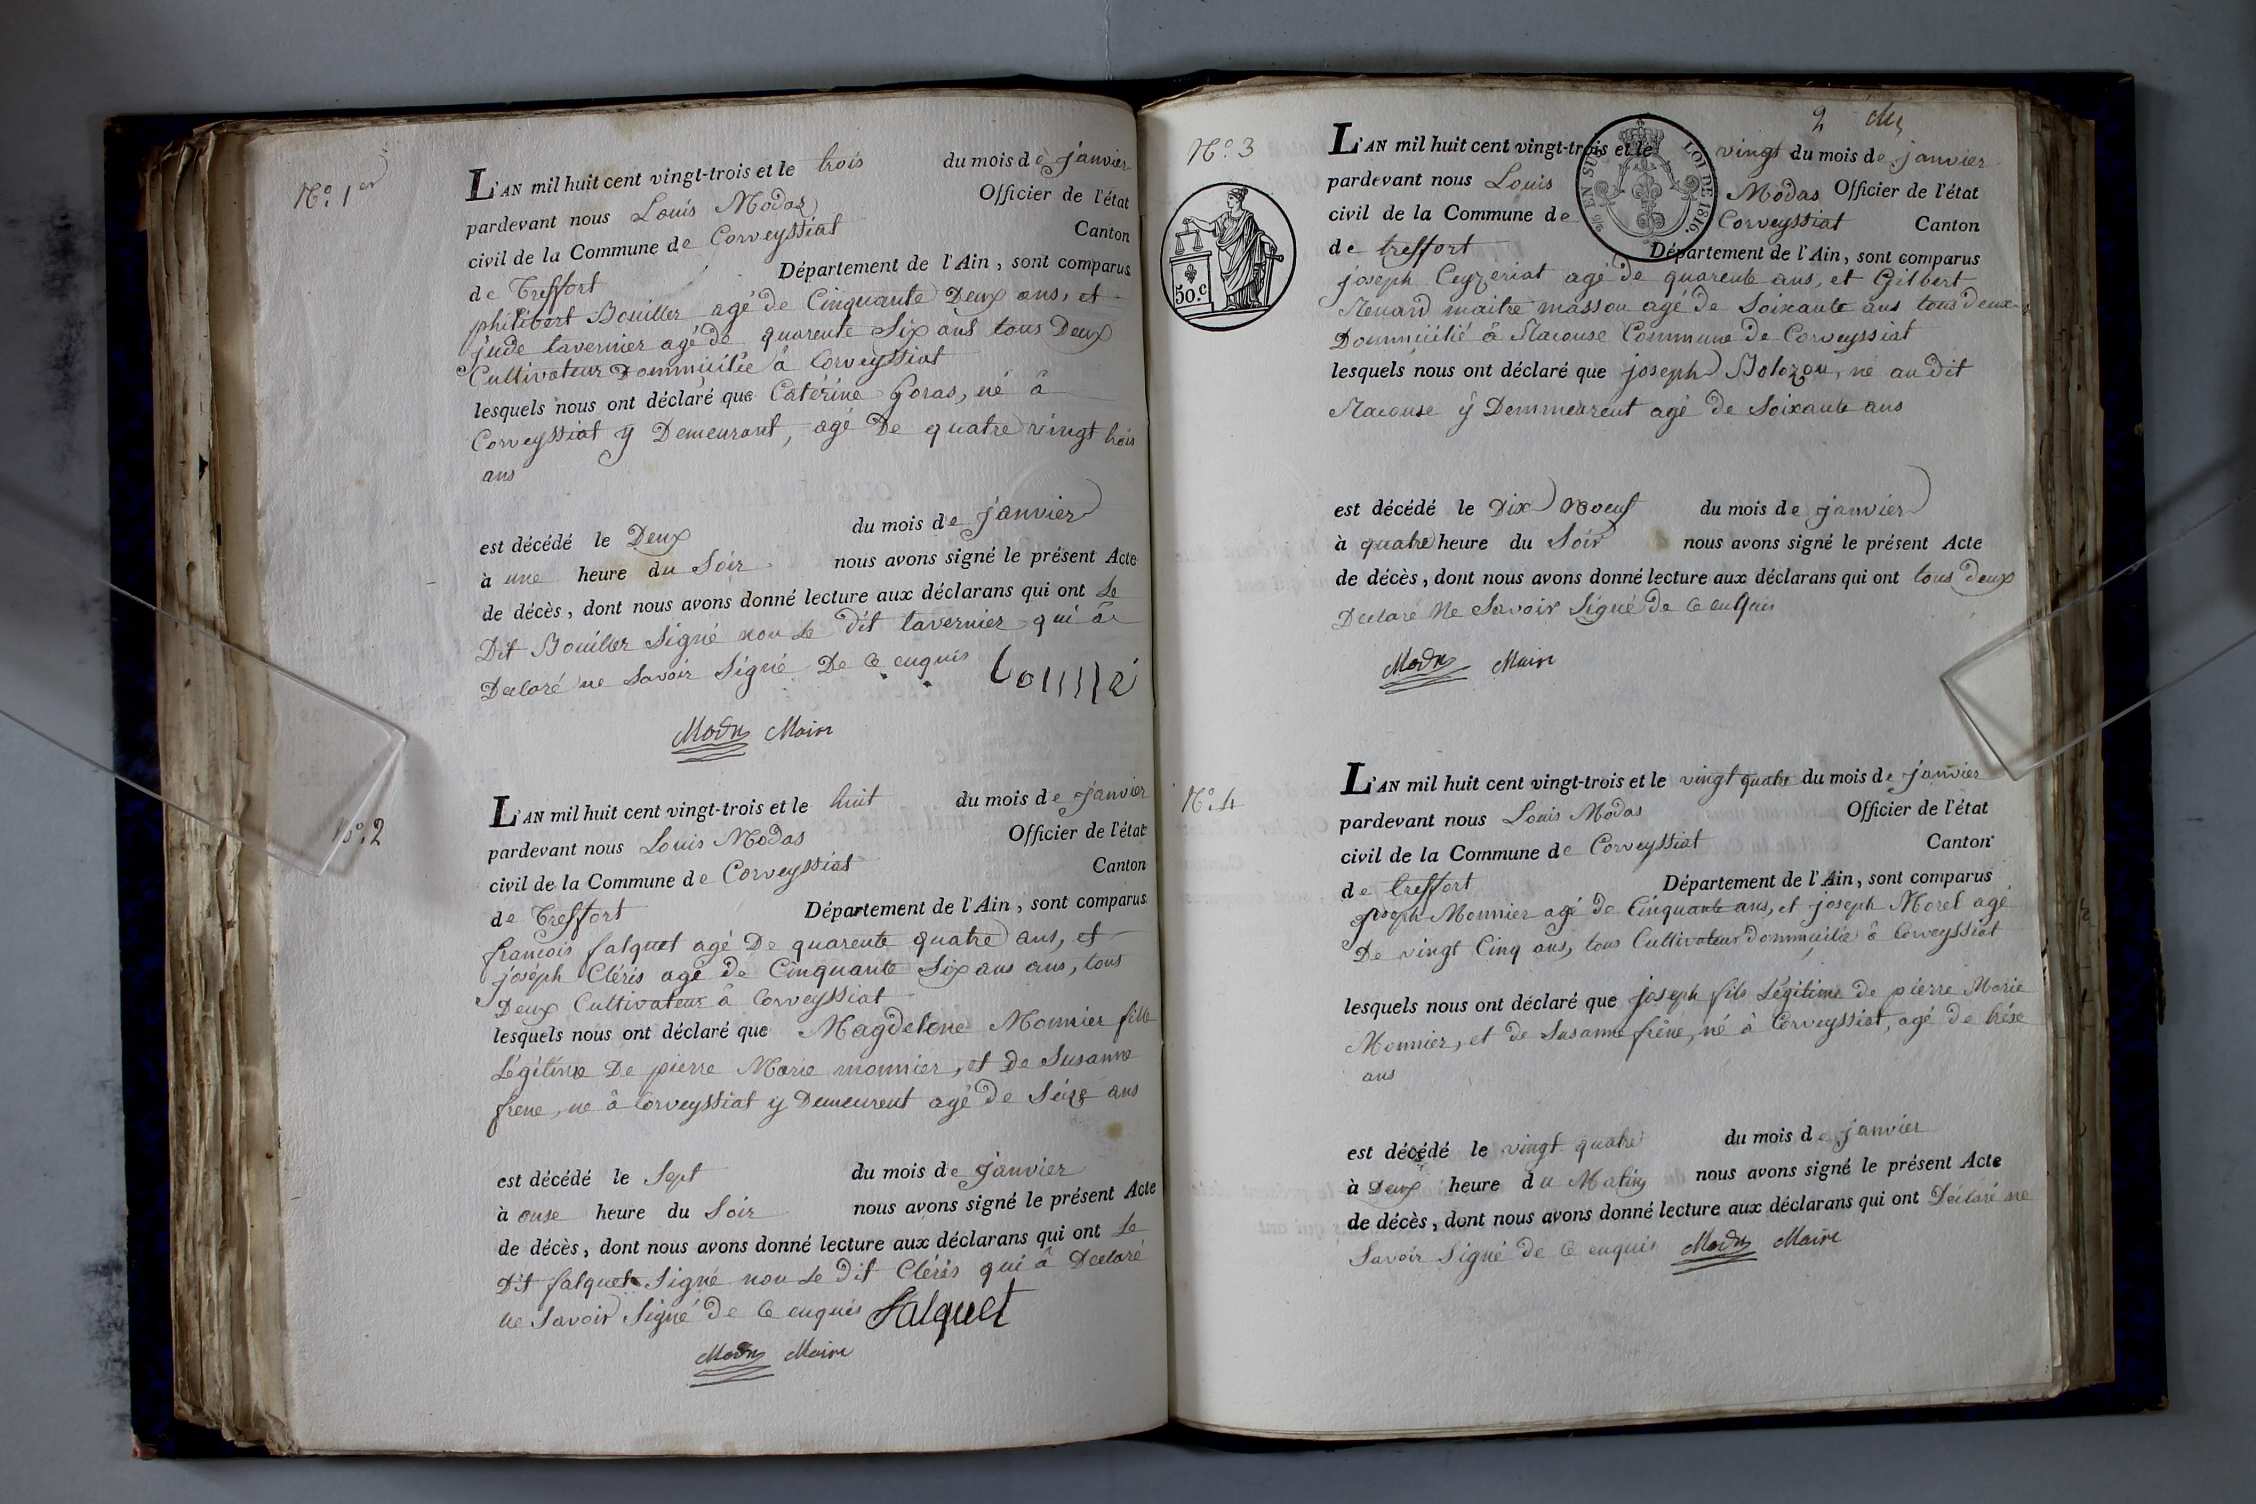 N.º 1er
L'AN mil huit cent vingt-trois et le trois du mois de janvier
pardevant nous Louis Modas Officier de l'état
civil de la Commune de Corveyssiat Canton
de Treffort Département de l'Ain, sont comparus
philibert Bouiller agé de Cinquante Deux ans, et
jude tavernier agé de quarente Six ans tous Deux
Cultivateur Dommicilié à Corveyssiat
lesquels nous ont déclaré que Catérine Goras, né à
Corveyssiat y Demeurant, agé De quatre vingt trois
ans
est décédé le Deux du mois de janvier
à une heure du Soir nous avons signé le présent Acte
de décès, dont nous avons donné lecture aux déclarans qui ont Le
Dit Bouiller Signé non Le dit tavernier qui à
Declaré ne Savoir Signé De Ce enquis
Maire
N.º 2
L'AN mil huit cent vingt-trois et le huit du mois de janvier
pardevant nous Louis Modas Officier de l'état
civil de la Commune de Corveyssiat Canton
de Treffort Département de l'Ain, sont comparus
francois falquet agé De quarente quatre ans, et
joséph Cléris agé de Cinquante Six ans ans, tous
Deux Cultivateur à Corveyssiat
lesquels nous ont déclaré que Magdelene Monnier fille
Légitime De pierre Marie monnier, et de Susanne
frene, né à Corveyssiat y Demeurent agé De Séize ans
est décédé le Sept du mois de janvier
à onse heure du Soir nous avons signé le présent Acte
de décès, dont nous avons donné lecture aux déclarans qui ont Le
Dit falquet Signé non Le Dit Cléris qui à Declaré
ne Savoir Signé De Ce enquis falquet
Maire
2
N.º 3
L'AN mil huit cent vingt-trois et le vingt du mois de janvier
pardevant nous Louis Modas Officier de l'état
civil de la Commune de Corveyssiat Canton
de treffort Département de l'Ain, sont comparus
EN SUS
LOI DE 1816.
50.c
joseph Ceyzeriat agé de quarente ans, et Gilbert
Renard maitre masson agé De Soixante ans tous deux
Dommicilié à Racouse Commune De Corveyssiat
lesquels nous ont déclaré que joseph Bolozon, né au dit
Racouse y Demmeurent agé de Soixante ans
est décédé le Dix Noeuf du mois de janvier
à quatre heure du Soir nous avons signé le présent Acte
de décès, dont nous avons donné lecture aux déclarans qui ont tous deux
Declaré Ne Savoir Signé De Ce enquis
Maire
N.º 4
L'AN mil huit cent vingt-trois et le vingt quatre du mois de janvier
pardevant nous Louis Modas Officier de l'état
civil de la Commune de Corveyssiat Canton
de treffort Département de l'Ain, sont comparus
joseph Monnier agé De Cinquante ans, et joseph Morel agé
De vingt Cinq ans, tous Cultivateur Dommicilié à Corveyssiat
lesquels nous ont déclaré que joseph fils Légitime de pierre Marie
Monnier, et de Susanne frêne, né à Corveyssiat, agé De tréze
ans
est décédé le vingt quatre du mois de janvier
à Deux heure du Matin nous avons signé le présent Acte
de décès, dont nous avons donné lecture aux déclarans qui ont Déclaré ne
Savoir Signé de Ce enquis Maire